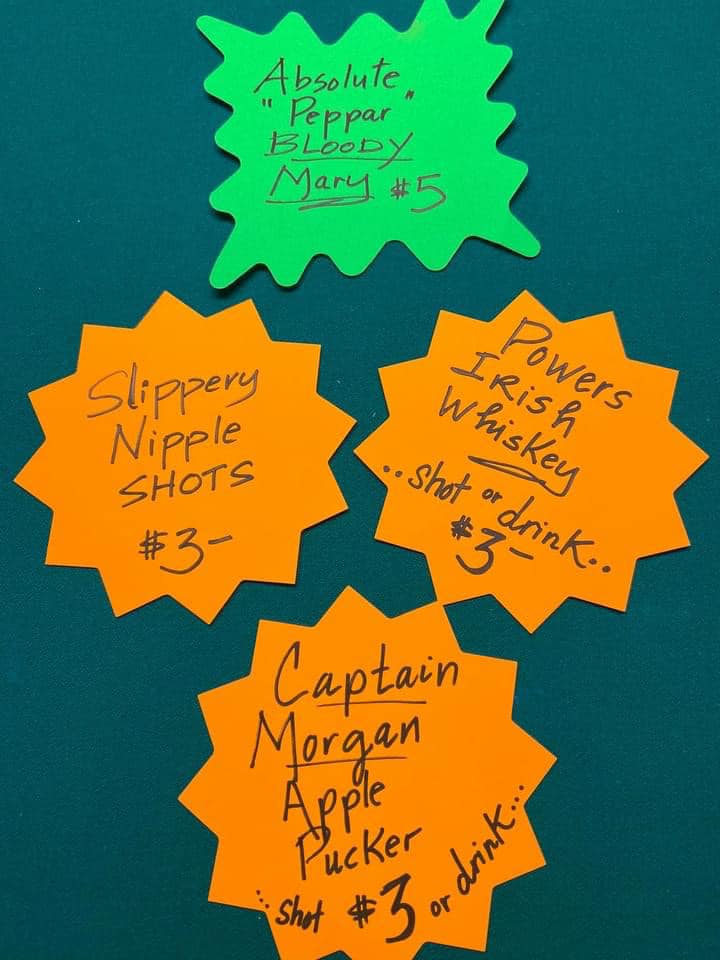 Absolute
"Peppar"
BLOODY
Mary $5
Slippery
Nipple
SHOTS
$3-
Powers
IRish
Whiskey
..shot or drink..
$3-
Captain
Morgan
Apple
Pucker
...shot $3 or drink...